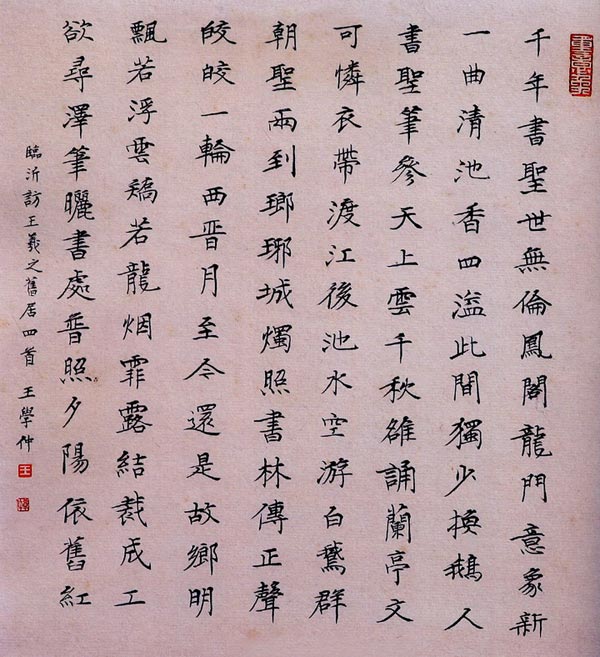 千年書聖世無倫鳳閣龍門意象新
一曲清池香四溢此間獨少換鵝人
書聖筆參天上雲千秋雒誦蘭亭文
可憐衣帶渡江後池水空游白鵞群
朝聖兩到瑯琊城燭照書林傳正聲
皎皎一輪两晋月至今還是故鄉明
飄若浮雲矯若龍烟霏露結裁成工
欲尋澤筆曬書處普照夕陽依舊紅
臨沂訪王羲之舊居四首 王學仲
王